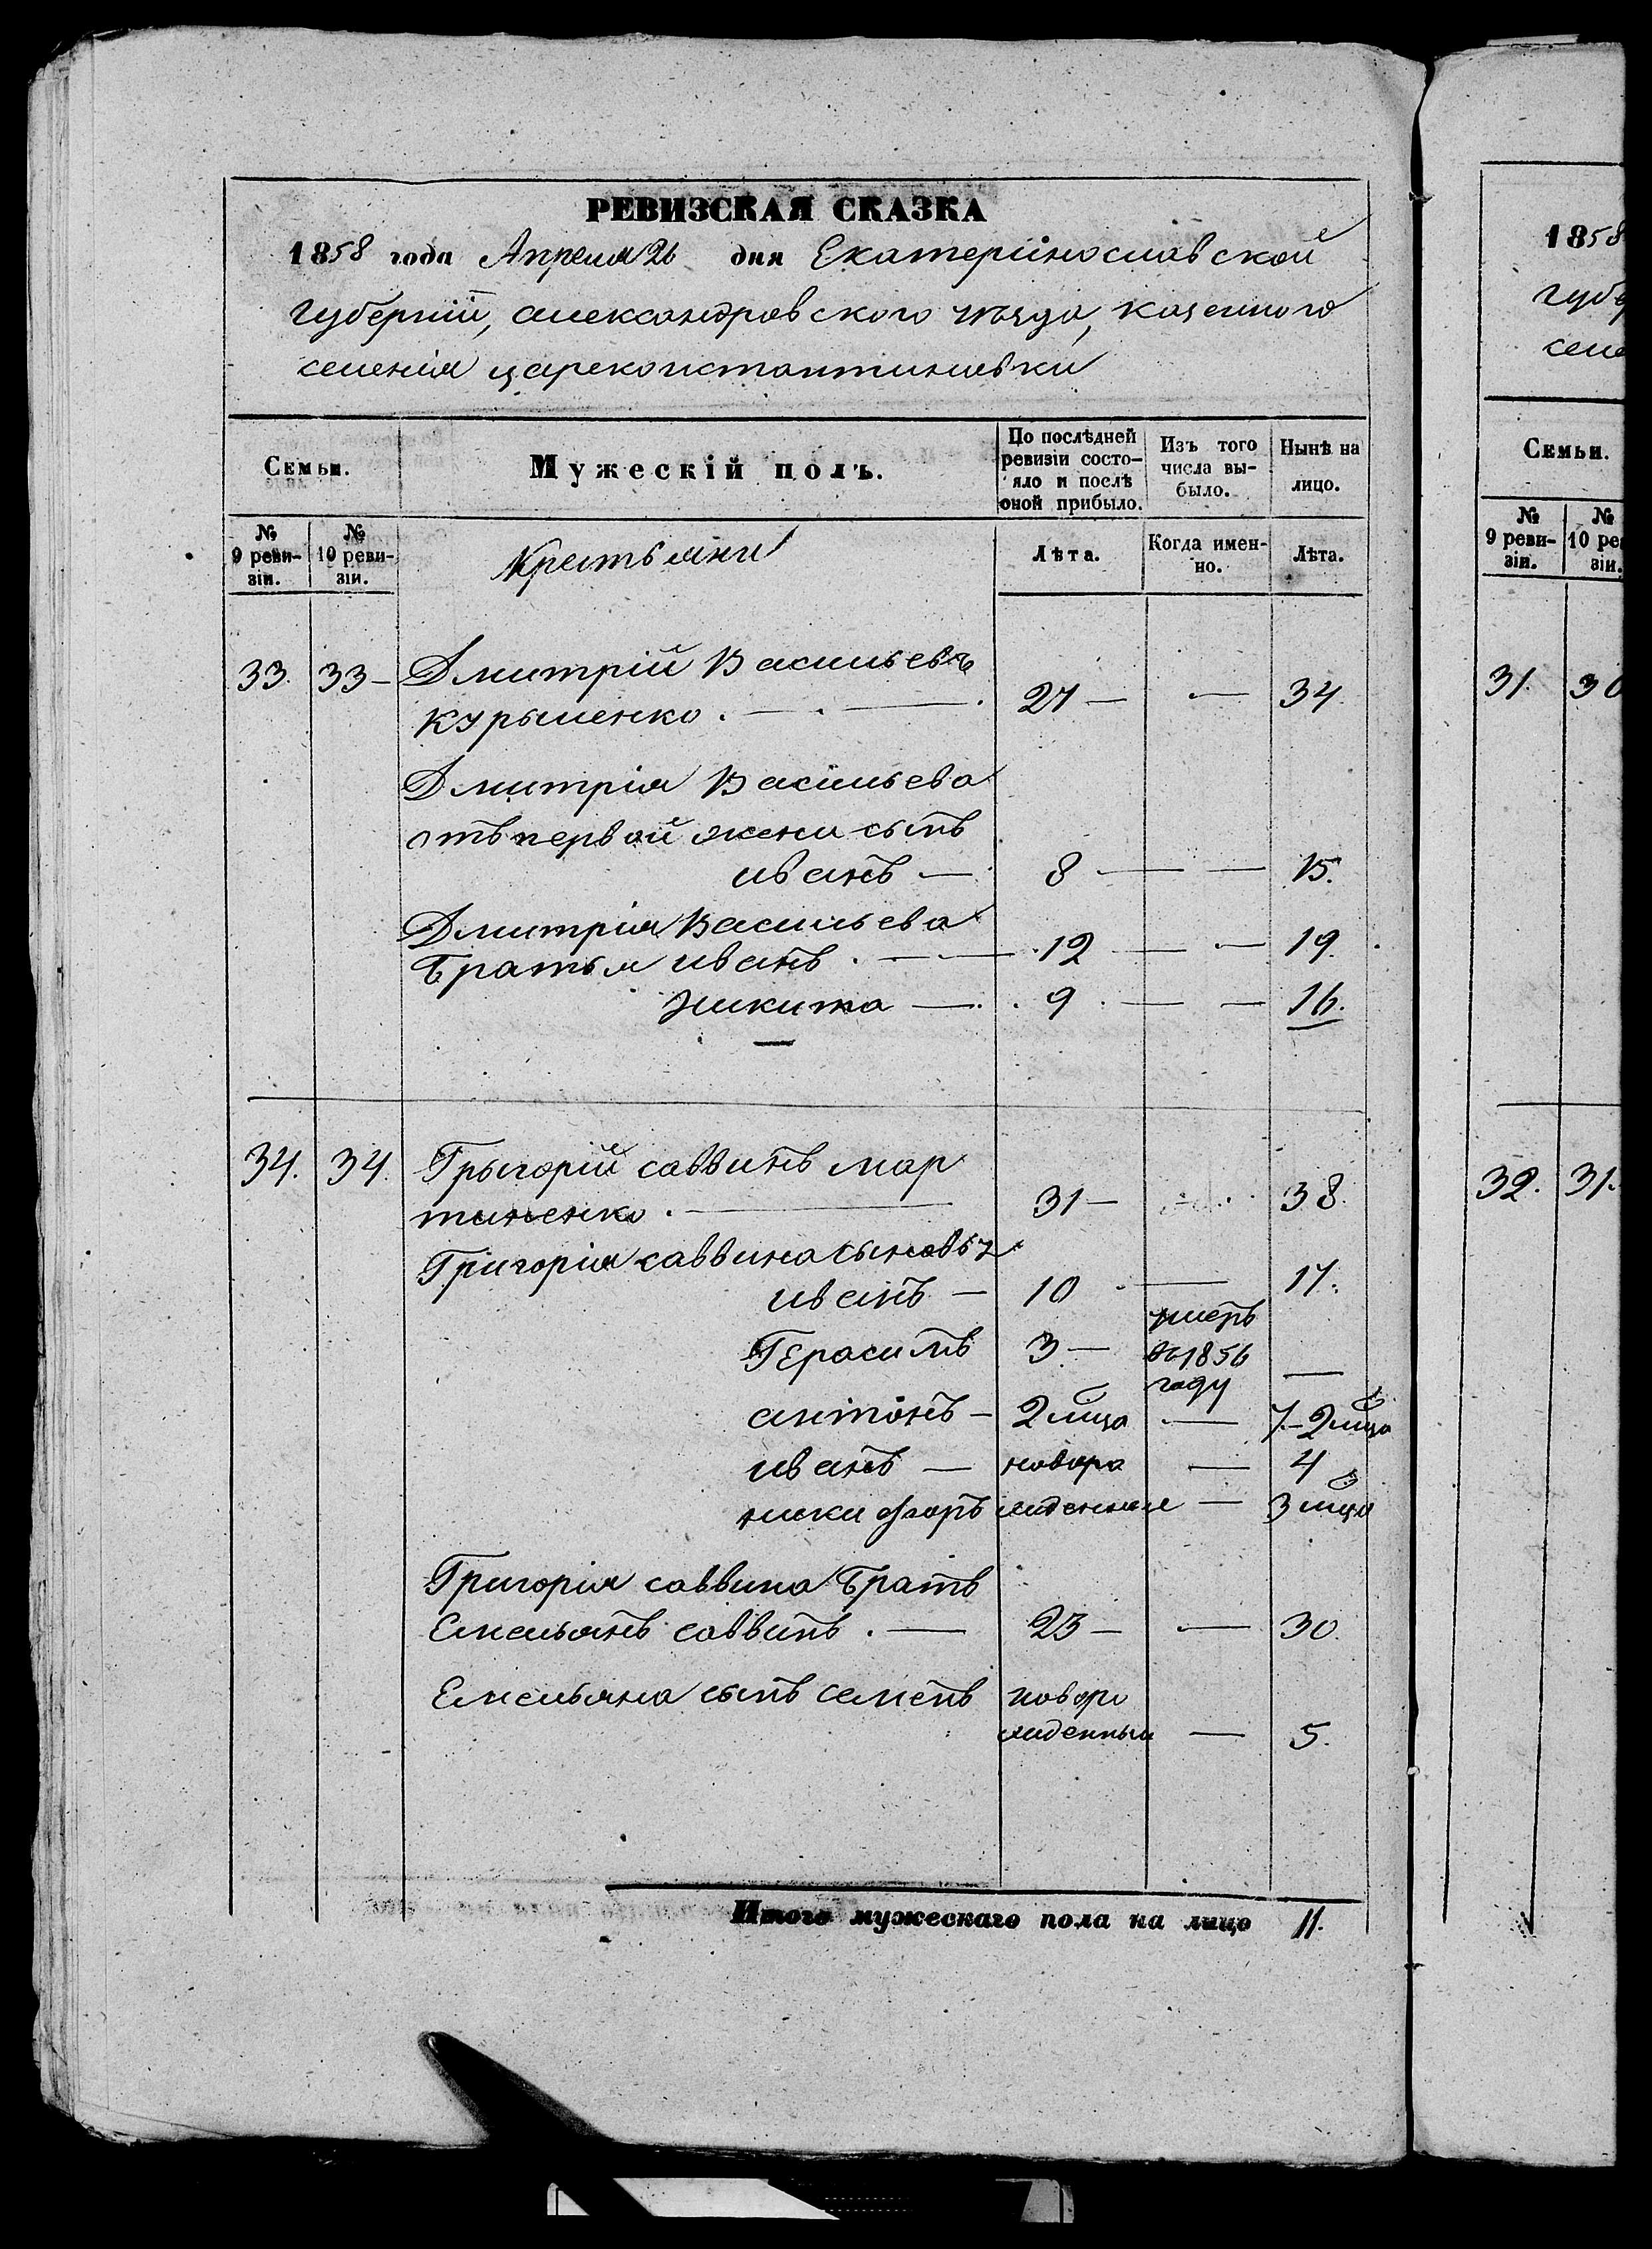 РЕВИЗСКАЯ СКАЗКА
1858 года Апреля 26 дня Екатерiйнославской
губернiй, александровского уѣзда, казенного
селенiя цареконстантиновки
Семьи.
Мужескій полъ.
По послѣдней ревизіи состояло и послѣ оной прибыло.
Изъ того числа выбыло.
Нынѣ на лицо.
№ 9 ревизіи.
№ 10 ревизіи.
Крестьяни
Лѣта.
Когда именно.
Лѣта.
33. 33- Дмитрій Васильевъ
Курыленко . — . — . 27 — — 34.
Дмитрія Васильева
отъ первой жени сынъ
иванъ — 8 — — 15.
Дмитрія Васильева
братья иванъ . — — 12 — — 19.
никита — . 9 . — — 16.
34. 34. Грыгорій саввинъ мар
тиненко . — 31 — 38.
Григорія саввина сыновья
иванъ — 10 — 17.
Герасимъ 3 — умеръ
въ 1856
году —
антонъ — 2 лица — 7.- 2 лица
иванъ — новоро — 4
никифоръ жденныи — 3 лица
Григорія саввина братъ
Емельянъ саввинъ . — 23 — — 30.
Емельяна сынъ семенъ новоро
жденныи — 5.
Итого мужескаго пола на лицо 11.
1858
губе
селе
Семьи.
№ 9 ревизіи.
№ 10 ре
зіи.
31. 30
32. 31.